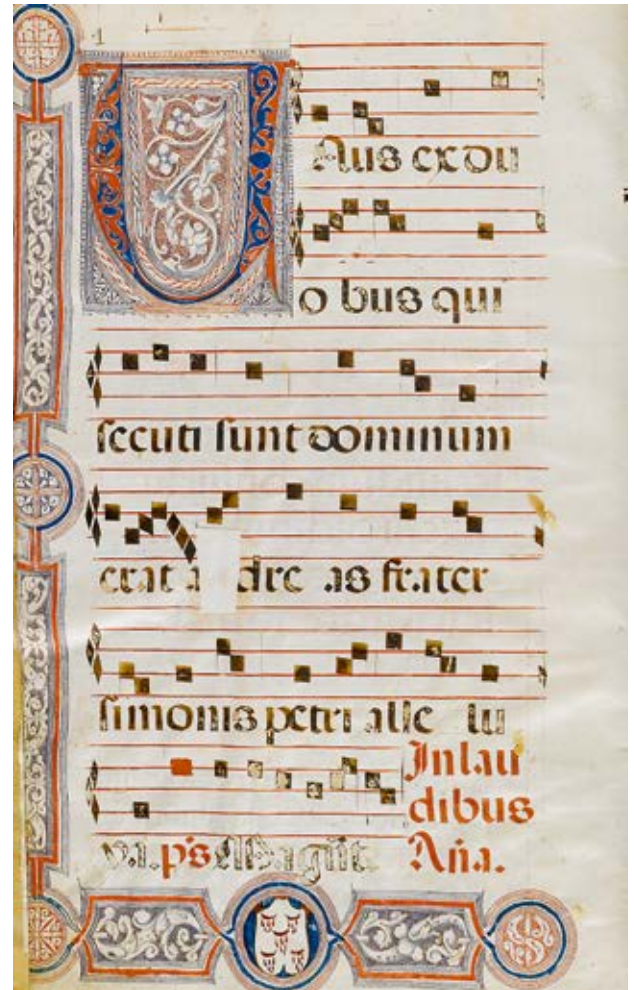 UNus ex du
o bus qui
secuti sunt dominum
erat a dre as frater
simonis petri alle lu
In lau
dibus
v.a. p̄s Magñt. Añā.